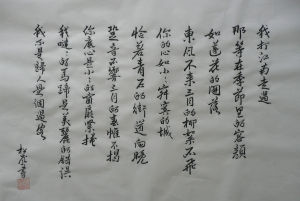 我打江南走過
那等在季節裡的容顏
如蓮花的開落
東風不來三月的柳絮不飛
你的心如小小寂寞的城
恰若青石的街道向晚
跫音不響三月的春帷不揭
你底心是小小的窗扉緊掩
我達達的馬蹄是美麗的錯誤
我不是歸人是個過客